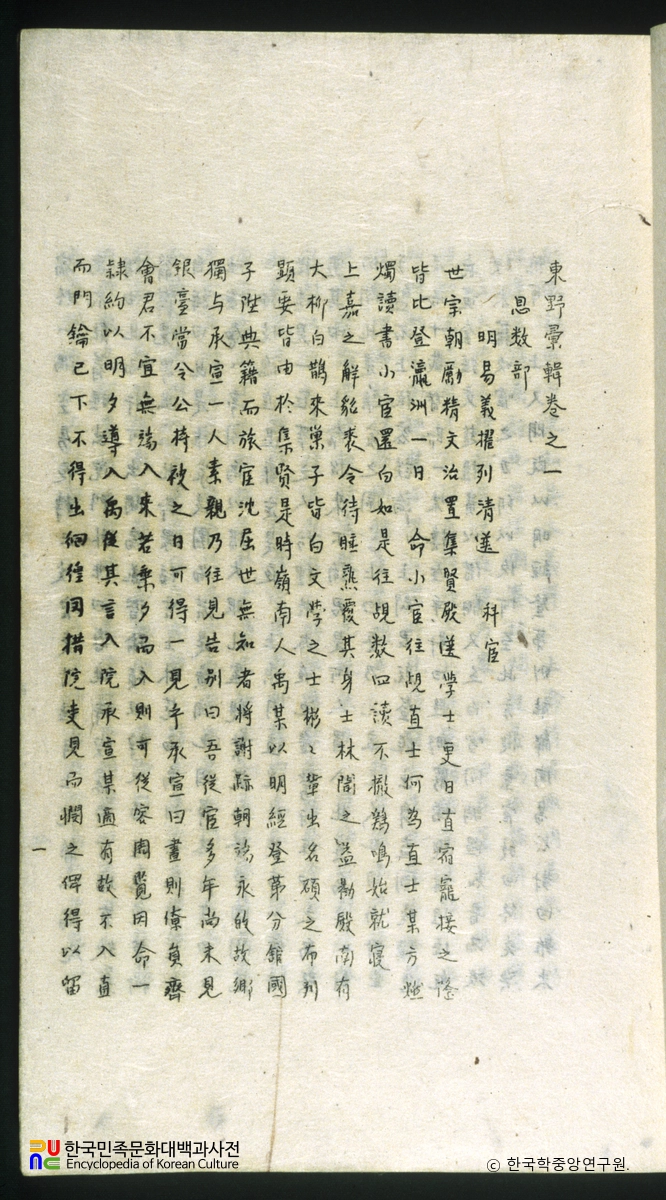 東野彙輯卷之一
恩數部
明易義擢列清選 科宦
世宗朝勵精文治置集賢殿選學士更日直宿寵接之隆
皆比登瀛洲一日 命小宦往覘直士何爲直士某方燃
燭讀書小宦還白如是往覘数四讀不撤鷄鳴始就寢
上嘉之解貂裘令待睡熟覆其身士林聞之益勸殿南有
大柳白鵲來巢子皆白文學之士彬〻輩出名碩之布列
顯要皆由於集贤是時嶺南人禹某以明經登第分館國
子陞典籍而旅宦沈屈世無知者將謝跡朝端永的故鄉
獨与承宣一人素親乃往見告别曰吾從宦多年尚未見
銀臺當令公持被之日可得一見乎承宣曰晝則僚員齊
會君不宜無端入来若乘夕而入則可從容周覽因命一
隷約以明夕導入禹從其言入院承宣某適有故不入直
而門鑰已下不得出徊徨罔措院吏見而憫之俾得以留
一
한국민족문화대백과사전
Encyclopedia of Korean Culture
© 한국학중앙연구원.